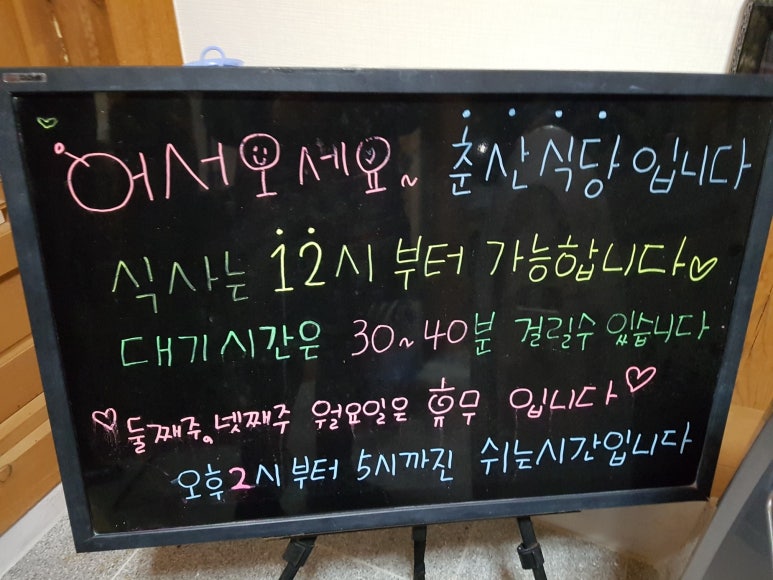 어서오세요~ 춘산식당입니다
식사는 12시부터 가능합니다♡
대기시간은 30~40분 걸릴수 있습니다
♡둘째주.넷째주 월요일은 휴무 입니다♡
오후2시부터 5시까진 쉬는시간입니다